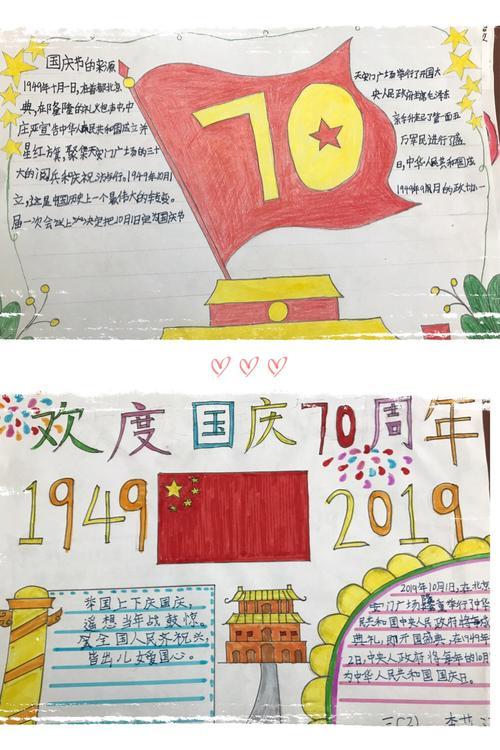 国庆节的来源
1949年十月一日,在首都北京 天安门广场举行了开国大
典,在隆隆的礼炮声中,中 央人民政府主席毛泽东
庄严宣告中华人民共和国成立并 亲手升起了第一面五
星红旗,聚集天安门广场的三十 万军民进行了盛
大的阅兵和庆祝游行。1949年10月1 日,中华人民共和国成
立,这是中国历史上一个最伟大的转变。 1949年9月的政协一
届一次会议上决定把10月1日定为国庆节
70
欢度国庆70周年
1949 2019
举国上下庆国庆,
遥想当年战鼓擂。
全国人民齐祝兴,
皆出儿女爱国心。
2019年10月1日,在北京
安门广场举行了中华
民共和国中央人民政府成
典礼,即开国盛典,在1949年
2日,中央人政府将每年的10月
为中华人民共和国国庆日。
三(2) 李